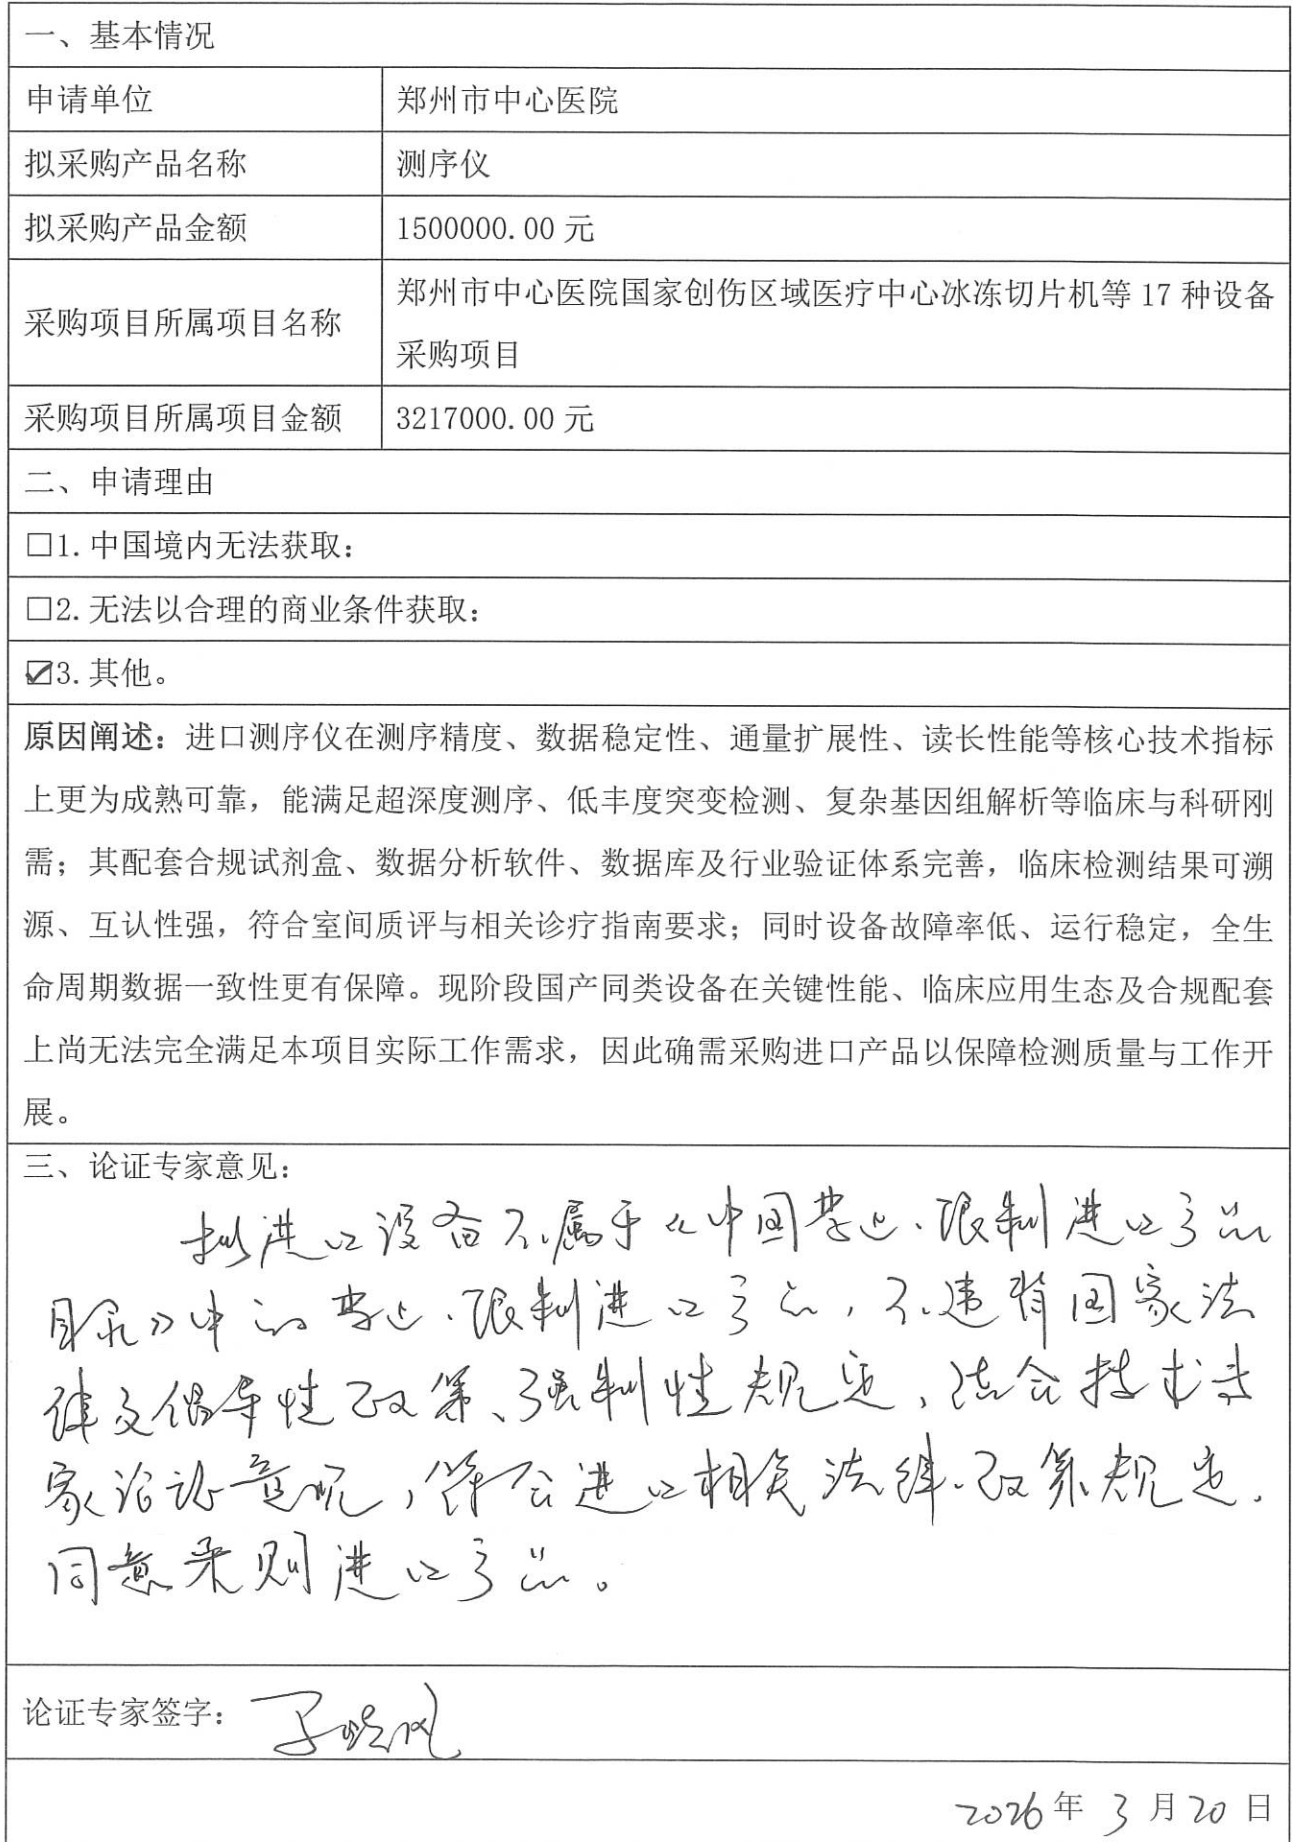 一、基本情况
申请单位
郑州市中心医院
拟采购产品名称
测序仪
拟采购产品金额
1500000.00 元
采购项目所属项目名称
郑州市中心医院国家创伤区域医疗中心冰冻切片机等 17 种设备
采购项目
采购项目所属项目金额
3217000.00 元
二、申请理由
□1.中国境内无法获取：
□2.无法以合理的商业条件获取：
☑3.其他。
原因阐述：进口测序仪在测序精度、数据稳定性、通量扩展性、读长性能等核心技术指标
上更为成熟可靠，能满足超深度测序、低丰度突变检测、复杂基因组解析等临床与科研刚
需；其配套合规试剂盒、数据分析软件、数据库及行业验证体系完善，临床检测结果可溯
源、互认性强，符合室间质评与相关诊疗指南要求；同时设备故障率低、运行稳定，全生
命周期数据一致性更有保障。现阶段国产同类设备在关键性能、临床应用生态及合规配套
上尚无法完全满足本项目实际工作需求，因此确需采购进口产品以保障检测质量与工作开
展。
三、论证专家意见：
拟进口设备不属于《中国禁止、限制进口产品
目录》中的禁止、限制进口产品，不违背国家法
律及倡导性政策、强制性规定，结合技术专
家论证意见，符合进口相关法律、政策规定，
同意采购进口产品。
论证专家签字：
2026年 3 月 20 日